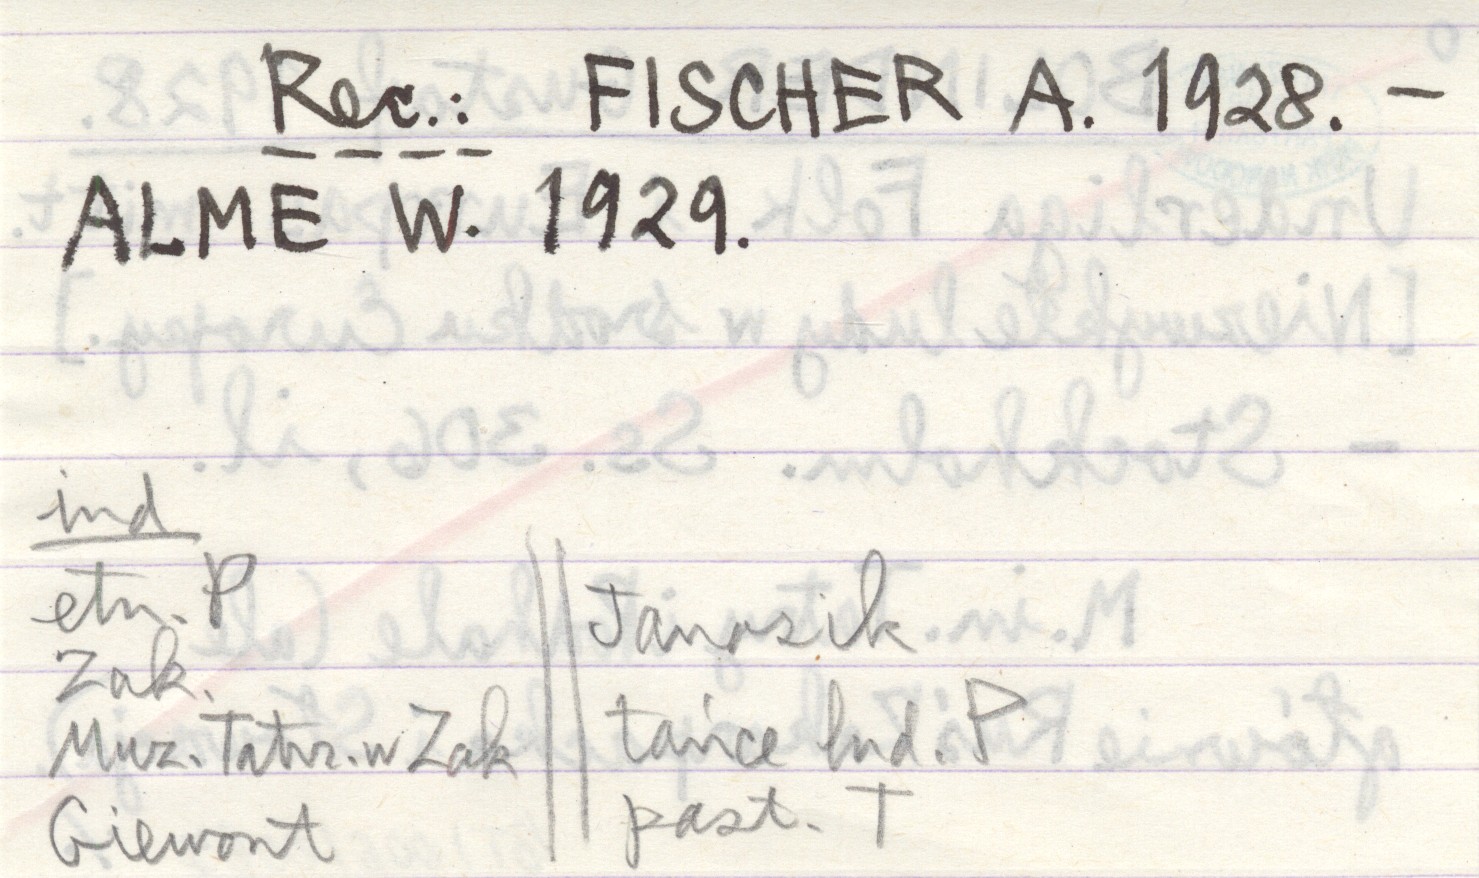 Rec.: FISCHER A. 1928. –
ALME W. 1929.
ind
etn. P
Zak.
Muz. Tatrz. w Zak
Giewont
Janosik
tańce lud. P
past. T